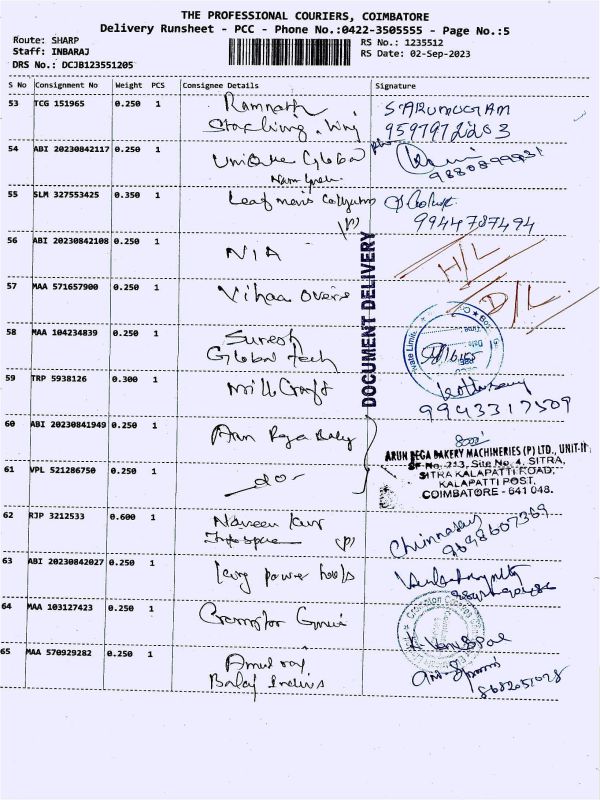 THE PROFESSIONAL COURIERS, COIMBATORE
Delivery Runsheet - PCC - Phone No.:0422-3505555 - Page No.:5
Route: SHARP
Staff: INBARAJ
DRS No.: DCJB123551205
RS No.: 1235512
RS Date: 02-Sep-2023
S No Consignment No Weight PCS Consignee Details Signature
53 TCG 151965 0.250 1 Ramnath S. ARUMUGAM
9597972203
54 ABI 20230842117 0.250 1 Unique Global
55 SLM 327553425 0.350 1 Leaf mens
9944787494
56 ABI 20230842108 0.250 1 NIA H/L
57 MAA 571657900 0.250 1 Vihaa D/L
DOCUMENT DELIVERY
58 MAA 104234839 0.250 1 Suresh
Global Tech
59 TRP 5938126 0.300 1 Mill Craft
9943317509
60 ABI 20230841949 0.250 1 Arun Rega
ARUN REGA BAKERY MACHINERIES (P) LTD., UNIT-II
SF No. 213, Site No. 4, SITRA,
SITRA KALAPATTI ROAD,
KALAPATTI POST,
COIMBATORE - 641 048.
61 VPL 521286750 0.250 1 -do-
62 RJP 3212533 0.600 1 Naveen Chinnasamy
9698607369
63 ABI 20230842027 0.250 1 power tools
64 MAA 103127423 0.250 1 Crompton K. Venugopal
65 MAA 570929282 0.250 1 Amul raj
Balaji